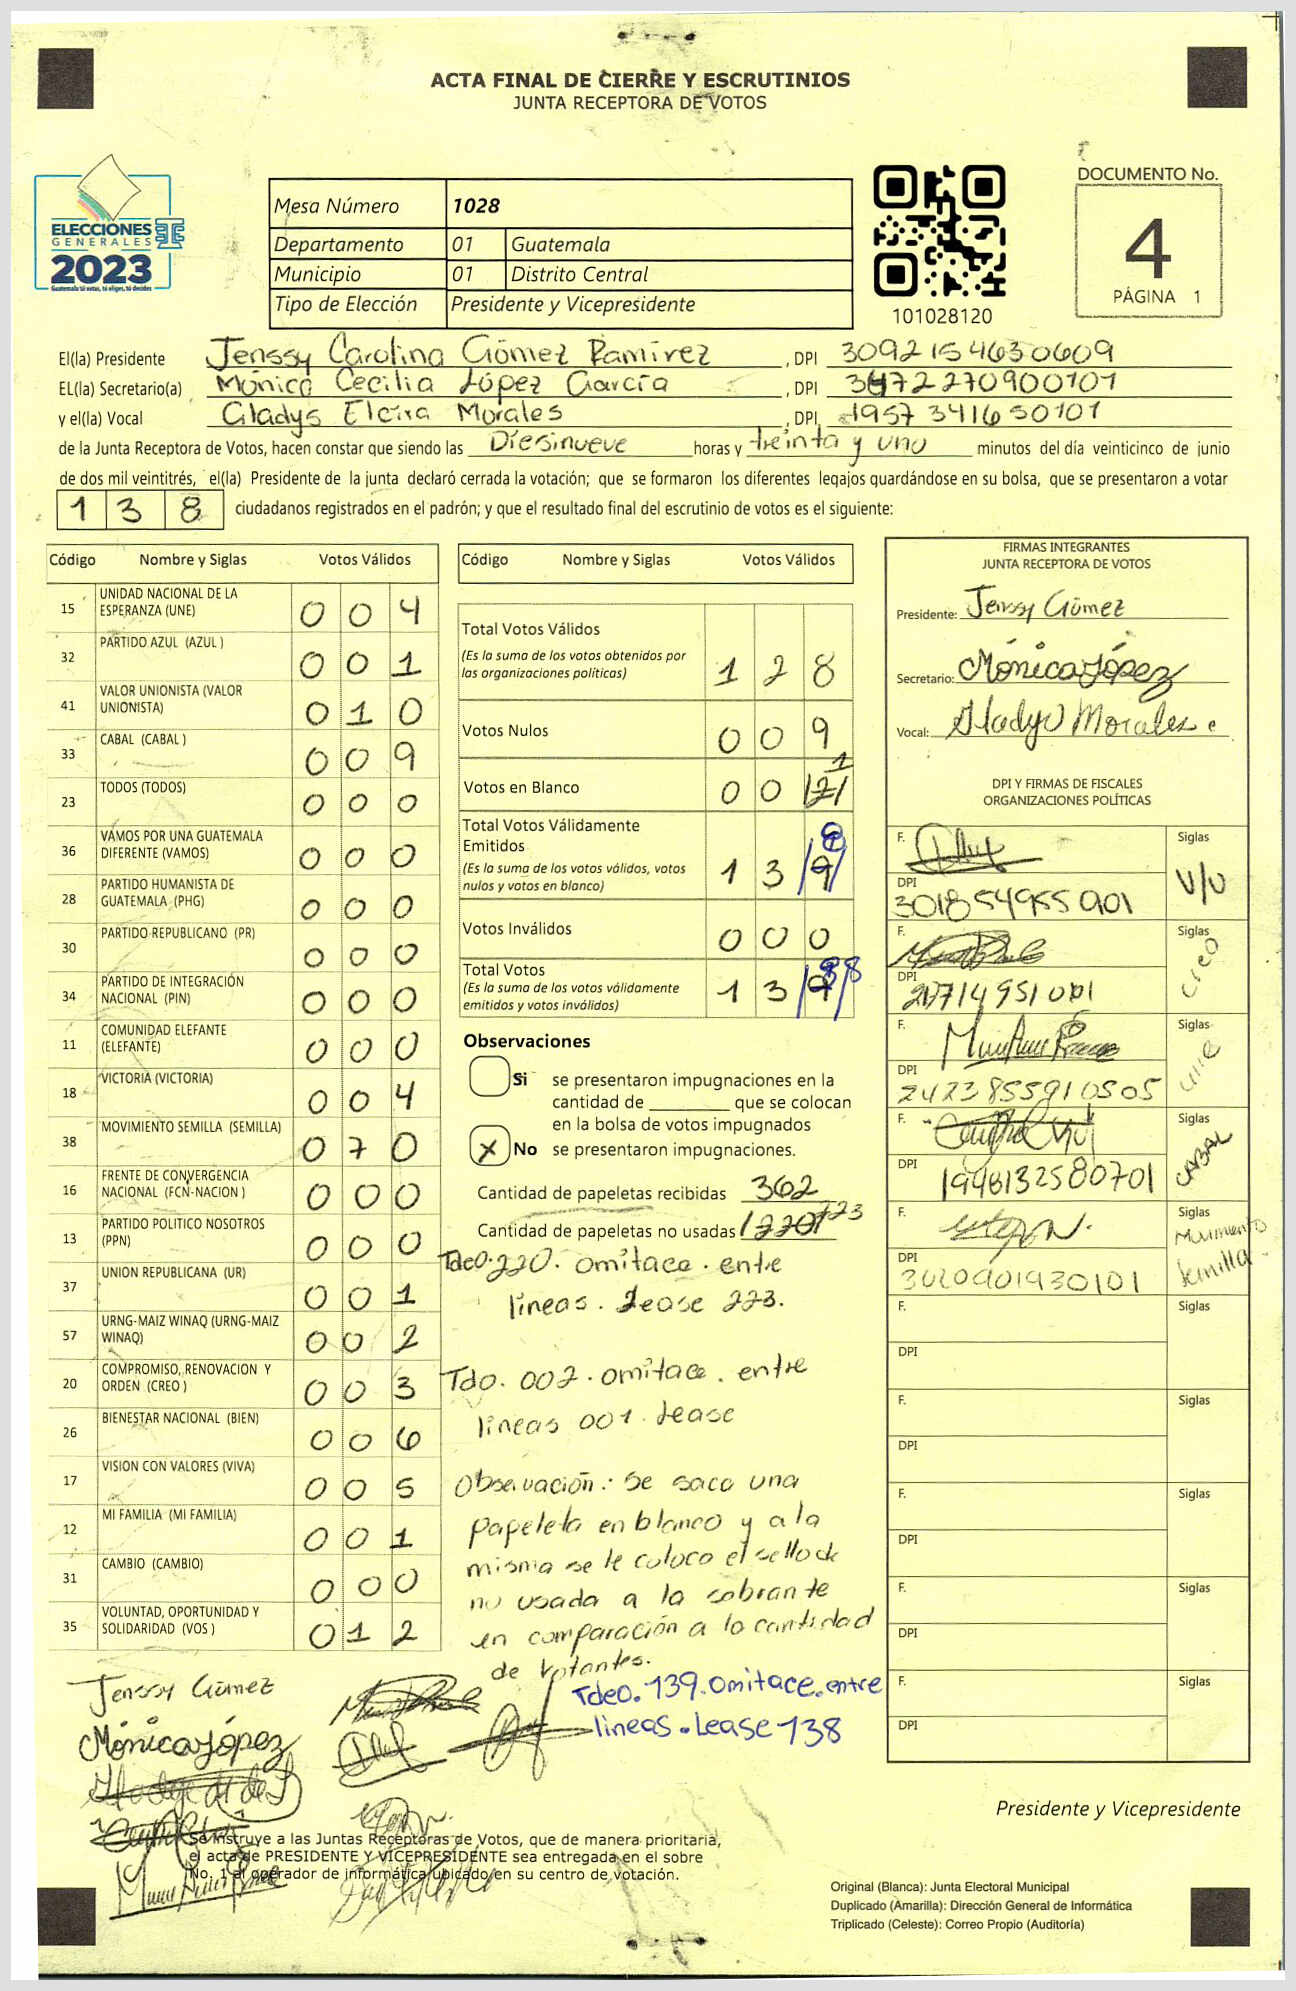 ACTA FINAL DE CIERRE Y ESCRUTINIOS
JUNTA RECEPTORA DE VOTOS
ELECCIONES
GENERALES
2023
Guatemala tú votas, tú eliges, tú decides
Mesa Número 1028
Departamento 01 Guatemala
Municipio 01 Distrito Central
Tipo de Elección Presidente y Vicepresidente
101028120
DOCUMENTO No.
4
PÁGINA 1
El(la) Presidente Jenssy Carolina Gómez Ramírez, DPI 3092154630609
EL(la) Secretario(a) Mónica Cecilia López García, DPI 3472270900101
y el(la) Vocal Gladys Elcira Morales, DPI 1957341650101
de la Junta Receptora de Votos, hacen constar que siendo las Diesinueve horas y treinta y uno minutos del día veinticinco de junio
de dos mil veintitrés, el(la) Presidente de la junta declaró cerrada la votación; que se formaron los diferentes legajos guardándose en su bolsa, que se presentaron a votar
138 ciudadanos registrados en el padrón; y que el resultado final del escrutinio de votos es el siguiente:
Código Nombre y Siglas Votos Válidos
15 UNIDAD NACIONAL DE LA ESPERANZA (UNE) 004
32 PARTIDO AZUL (AZUL ) 001
41 VALOR UNIONISTA (VALOR UNIONISTA) 010
33 CABAL (CABAL ) 009
23 TODOS (TODOS) 000
36 VAMOS POR UNA GUATEMALA DIFERENTE (VAMOS) 000
28 PARTIDO HUMANISTA DE GUATEMALA (PHG) 000
30 PARTIDO REPUBLICANO (PR) 000
34 PARTIDO DE INTEGRACIÓN NACIONAL (PIN) 000
11 COMUNIDAD ELEFANTE (ELEFANTE) 000
18 VICTORIA (VICTORIA) 004
38 MOVIMIENTO SEMILLA (SEMILLA) 070
16 FRENTE DE CONVERGENCIA NACIONAL (FCN-NACION ) 000
13 PARTIDO POLITICO NOSOTROS (PPN) 000
37 UNION REPUBLICANA (UR) 001
57 URNG-MAIZ WINAQ (URNG-MAIZ WINAQ) 002
20 COMPROMISO, RENOVACION Y ORDEN (CREO ) 003
26 BIENESTAR NACIONAL (BIEN) 006
17 VISION CON VALORES (VIVA) 005
12 MI FAMILIA (MI FAMILIA) 001
31 CAMBIO (CAMBIO) 000
35 VOLUNTAD, OPORTUNIDAD Y SOLIDARIDAD (VOS ) 012
Código Nombre y Siglas Votos Válidos
Total Votos Válidos
(Es la suma de los votos obtenidos por
las organizaciones políticas) 128
Votos Nulos 009
Votos en Blanco 00 1
Total Votos Válidamente
Emitidos
(Es la suma de los votos válidos, votos
nulos y votos en blanco) 139 8
Votos Inválidos 000
Total Votos
(Es la suma de los votos válidamente
emitidos y votos inválidos) 139 8
Observaciones
Si se presentaron impugnaciones en la
cantidad de ________ que se colocan
en la bolsa de votos impugnados
X No se presentaron impugnaciones.
Cantidad de papeletas recibidas 362
Cantidad de papeletas no usadas 220 223
Tdeo. 220. omitace. entre
lineas. Lease 223.
Tdo. 002. omitace. entre
lineas 001. Lease
Observación: Se saco una
papeleta en blanco y a la
misma se le coloco el sello de
no usada a la sobrante
en comparación a la cantidad
de votantes.
Tdeo. 139. Omitace. entre
lineas. Lease 138
FIRMAS INTEGRANTES
JUNTA RECEPTORA DE VOTOS
Presidente: Jenssy Gómez
Secretario: Mónica López
Vocal: Gladys Morales
DPI Y FIRMAS DE FISCALES
ORGANIZACIONES POLÍTICAS
F. Siglas
DPI 301854955 0101 V/U
F. Siglas
DPI Creo
F. Siglas
DPI 2423855910505 une
F. Siglas
DPI 1994813258 0701 CABAL
F. Siglas
DPI 3020901930101 Movimiento Semilla
F. Siglas
DPI
F. Siglas
DPI
F. Siglas
DPI
F. Siglas
DPI
F. Siglas
DPI
Jenssy Gómez
Mónica López
Presidente y Vicepresidente
Se instruye a las Juntas Receptoras de Votos, que de manera prioritaria,
el acta de PRESIDENTE Y VICEPRESIDENTE sea entregada en el sobre
No. 1 al operador de informática ubicado en su centro de votación.
Original (Blanca): Junta Electoral Municipal
Duplicado (Amarilla): Dirección General de Informática
Triplicado (Celeste): Correo Propio (Auditoría)